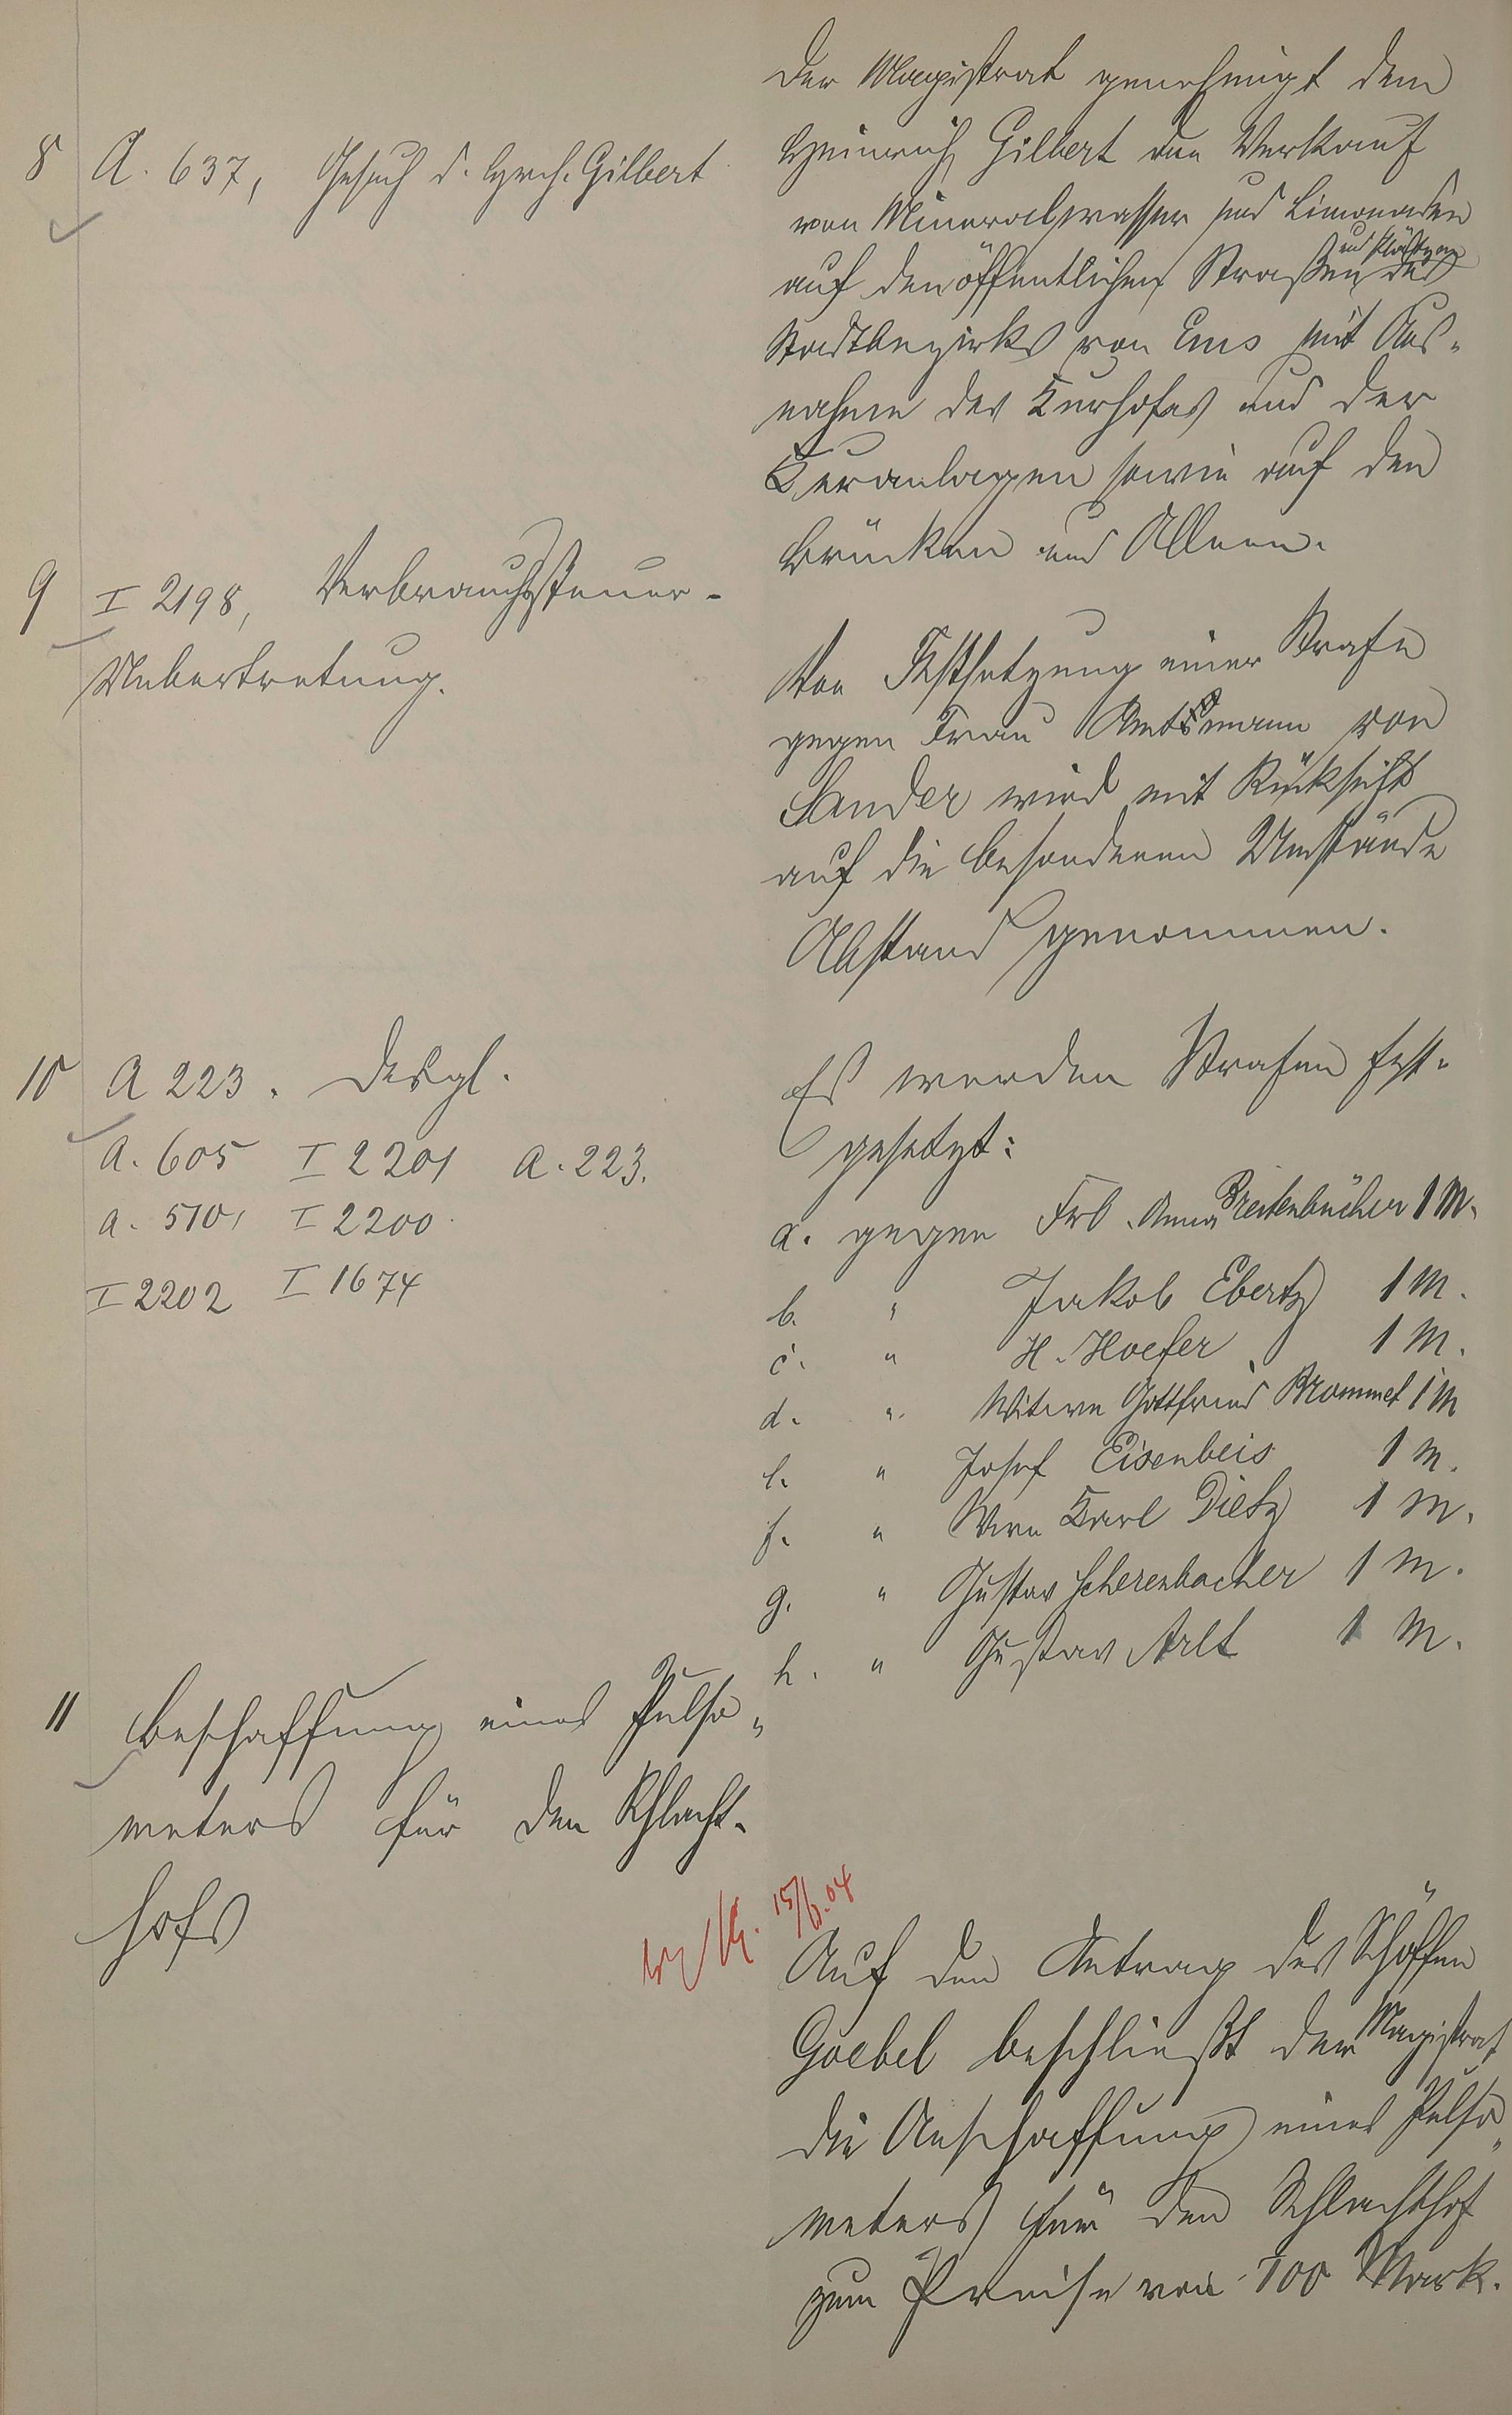 8 A. 637, Gesuch d. Hrch. Gilbert
Der Magistrat genehmigt dem
Heinrich Gilbert den Verkauf
von Mineralwasser und Limonaden
auf den öffentlichen Straßen und Plätzen des
Stadtbezirks von Ems mit Aus-
nahme des Kurhofes und der
Kuranlagen sowie auf den
Brücken und Alleen.
9 I 2198, Verbrauchssteuer-
Uebertretung.
Von Festsetzung einer Strafe
gegen Frau Amtmann von
Sander wird mit Rücksicht
auf die besonderen Umstände
Abstand genommen.
10 A 223. Desgl.
A. 605 I 2201 A. 223.
A. 510, I 2200.
I 2202 I 1674
Es werden Strafen fest-
gesetzt:
a. gegen Frl. Anna Breitenbücher 1 M.
b. " Jakob Ebertz 1 M.
c. " H. Hoefer 1 M.
d. " Witwe Gottfried Brommet 1 M
e. " Josef Eisenbeis 1 M.
f. " Wwe Karl Dietz 1 M.
g. " Gustav Scherenbacher 1 M.
h. " Gustav Arlt 1 M.
11 Beschaffung eines Pulso-
meters für den Schlacht-
hofs
15/6.04
Auf den Antrag des Schöffen
Goebel beschließt der Magistrat
die Anschaffung eines Pulso-
meters für den Schlachthof
zum Preise von 700 Mark.